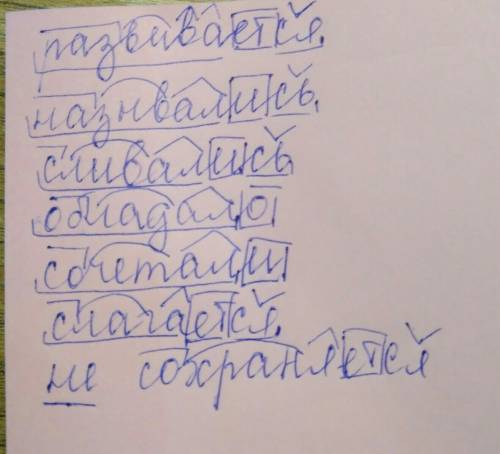 развивается.
назнвались.
сливались
обладало
сочетали
слагается.
не сохраняется